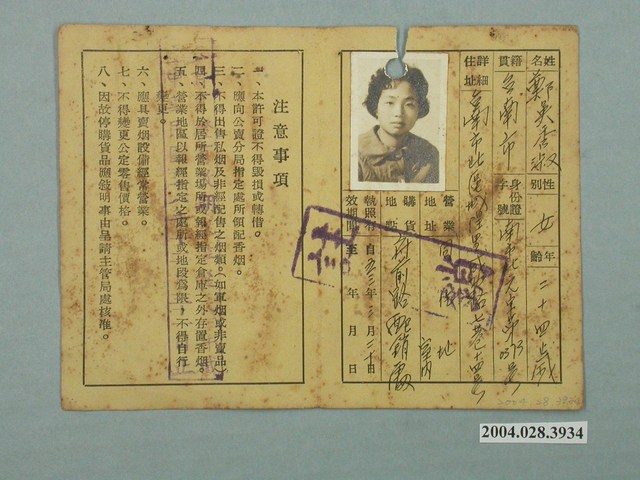 姓名
鄭吳杏淑
性別
女
年齡
二十四歲
籍貫
台南市
身份證字號
詳細住址
台南市北區
營業地址
同住址
室內
購貨地點
府前路配銷處
執照有效期間
自五三年三月二十日
至 年 月 日
注意事項
一、本許可證不得毀損或轉借。
二、應向公賣分局指定處所領配香烟。
三、不得出售私烟及非經配售之烟類。(如軍烟或非賣品)
四、不得於居所營業場所或報經指定倉庫之外存置香烟。
五、營業地區以報經指定之處所或地段為限，不得自行變更。
六、應具賣烟設備經常營業。
七、不得變更公定零售價格。
八、因故停購貨品應敘明事由呈請主管局處核准。
2004.028.3934